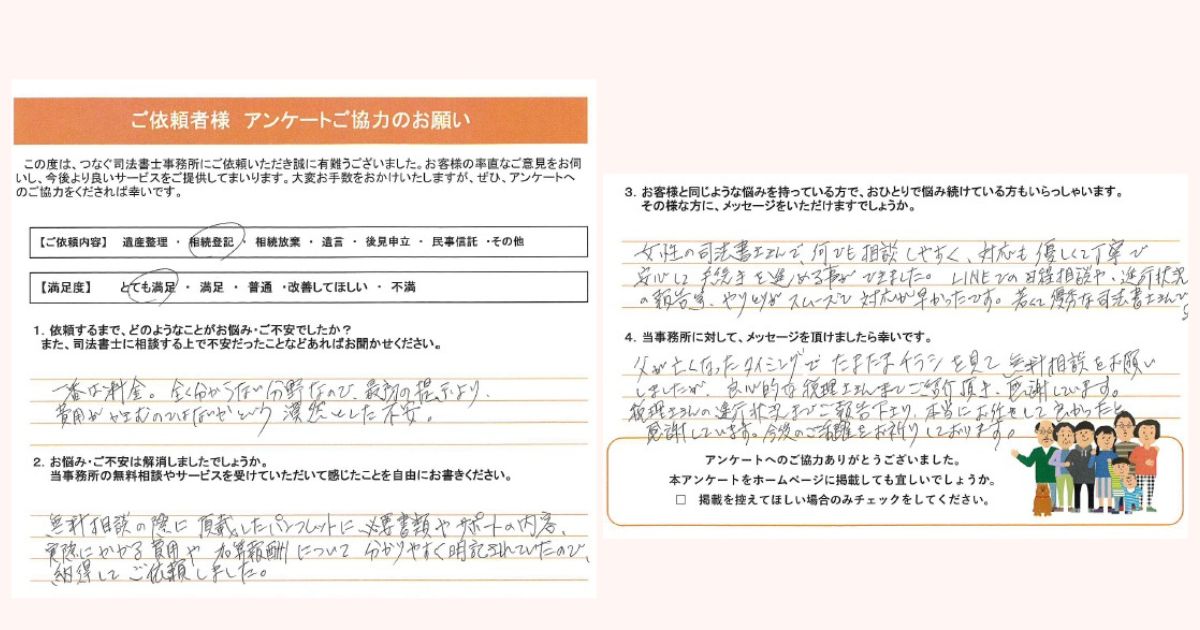 ご依頼者様 アンケートご協力のお願い
この度は、つなぐ司法書士事務所にご依頼いただき誠に有難うございました。お客様の率直なご意見をお伺
いし、今後より良いサービスをご提供してまいります。大変お手数をおかけいたしますが、ぜひ、アンケートへ
のご協力をくだされば幸いです。
【ご依頼内容】 遺産整理 ・ 相続登記 ・ 相続放棄 ・ 遺言 ・ 後見申立 ・ 民事信託 ・その他
【満足度】 とても満足 ・ 満足 ・ 普通 ・改善してほしい ・ 不満
1. 依頼するまで、どのようなことがお悩み・ご不安でしたか?
また、司法書士に相談する上で不安だったことなどあればお聞かせください。
一番は料金。全く分からない分野なので、最初の提示より、
費用がかさむのではないかという漠然とした不安。
2. お悩み・ご不安は解消しましたでしょうか。
当事務所の無料相談やサービスを受けていただいて感じたことを自由にお書きください。
無料相談の際に頂戴したパンフレットに、必要書類やサポートの内容、
実際にかかる費用や加算報酬について分かりやすく明記されていたので、
納得してご依頼しました。
3. お客様と同じような悩みを持っている方で、おひとりで悩み続けている方もいらっしゃいます。
その様な方に、メッセージをいただけますでしょうか。
女性の司法書士さんで、何でも相談しやすく、対応も優しくて丁寧で
安心して手続きを進める事ができました。LINEでの日程相談や、進行状況
の報告等、やりとりがスムーズで対応が早かったです。若くて優秀な司法書士さんで
す
4. 当事務所に対して、メッセージを頂けましたら幸いです。
父が亡くなったタイミングでたまたまチラシを見て無料相談をお願い
しましたが、良心的な税理士さんまでご紹介頂き、感謝しています。
税理士さんの進行状況までご報告下さり、本当にお任せして良かったと
感謝しています。今後のご活躍をお祈りしております。
アンケートへのご協力ありがとうございました。
本アンケートをホームページに掲載しても宜しいでしょうか。
□ 掲載を控えてほしい場合のみチェックをしてください。